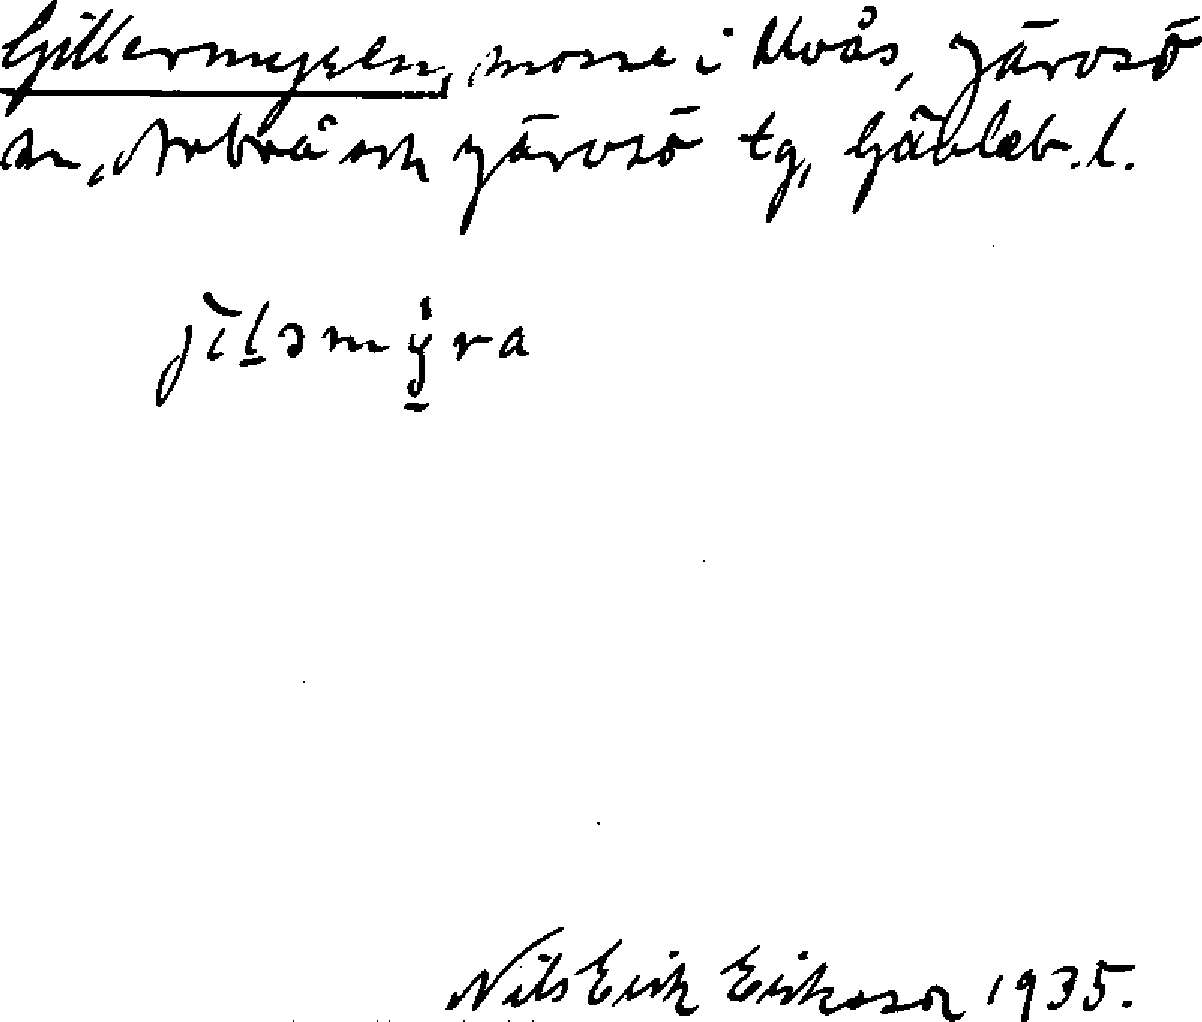 Gillermyren, mosse i Uvås, Järvsö
sn, Arbrå och Järvsö tg, Gävleb. l.
jìḻəmẏ̱ra
Nils Erik Eriksson 1935.